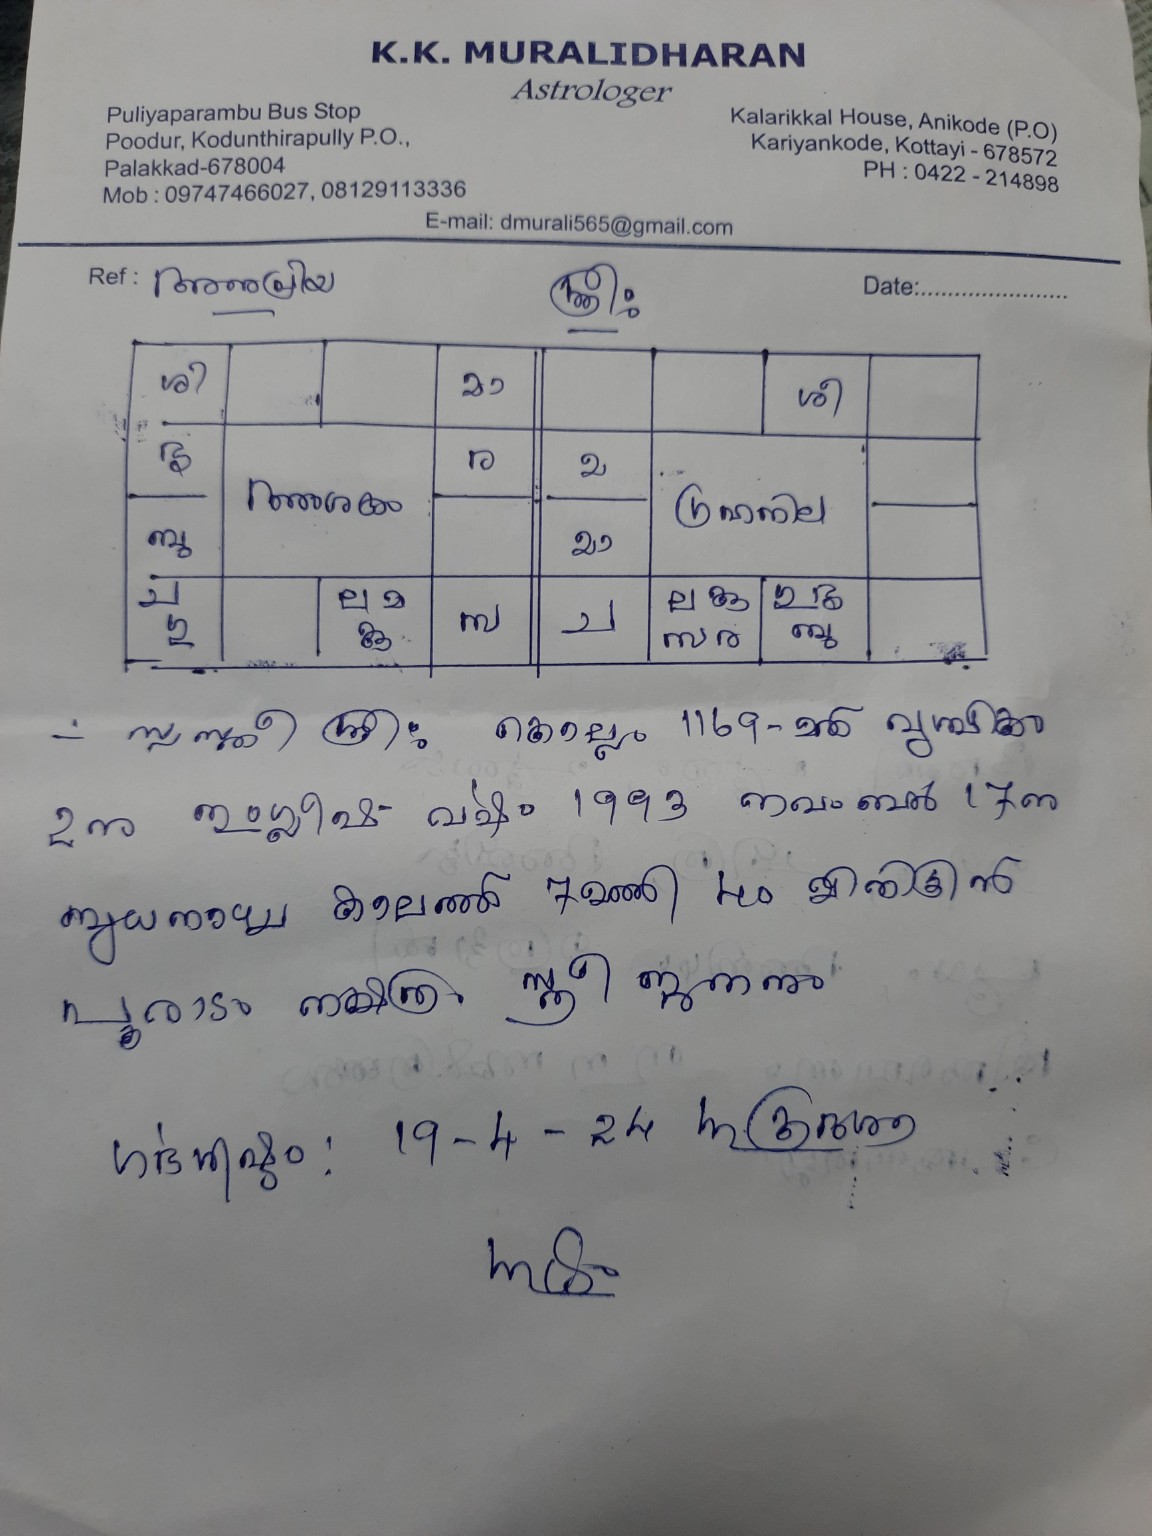 K.K. MURALIDHARAN
Astrologer
Puliyaparambu Bus Stop
Poodur, Kodunthirapully P.O.,
Palakkad-678004
Mob : 09747466027, 08129113336
Kalarikkal House, Anikode (P.O)
Kariyankode, Kottayi - 678572
PH : 0422 - 214898
E-mail: dmurali565@gmail.com
Ref :
ശ്രീഃ
Date:......................
ശി മാ ശി
ര
അംശകം ഗ്രഹനില
ബു മാ
ച ല മ സ ച ല കു
സ ര ബു
സ്വസ്തി ശ്രീഃ കൊല്ലം 1169-മത് വൃശ്ചികം
2ന ഇംഗ്ലീഷ് വർഷം 1993 നവംബർ 17ന
ബുധനാഴ്ച കാലത്ത് 7മണി 40 മിനിട്ടിൻ
പൂരാടം നക്ഷത്രം സ്ത്രീ ജനനം
ഗർഭശിഷ്ടം : 19 - 4 - 24 ശുക്രദശ
ശുഭം